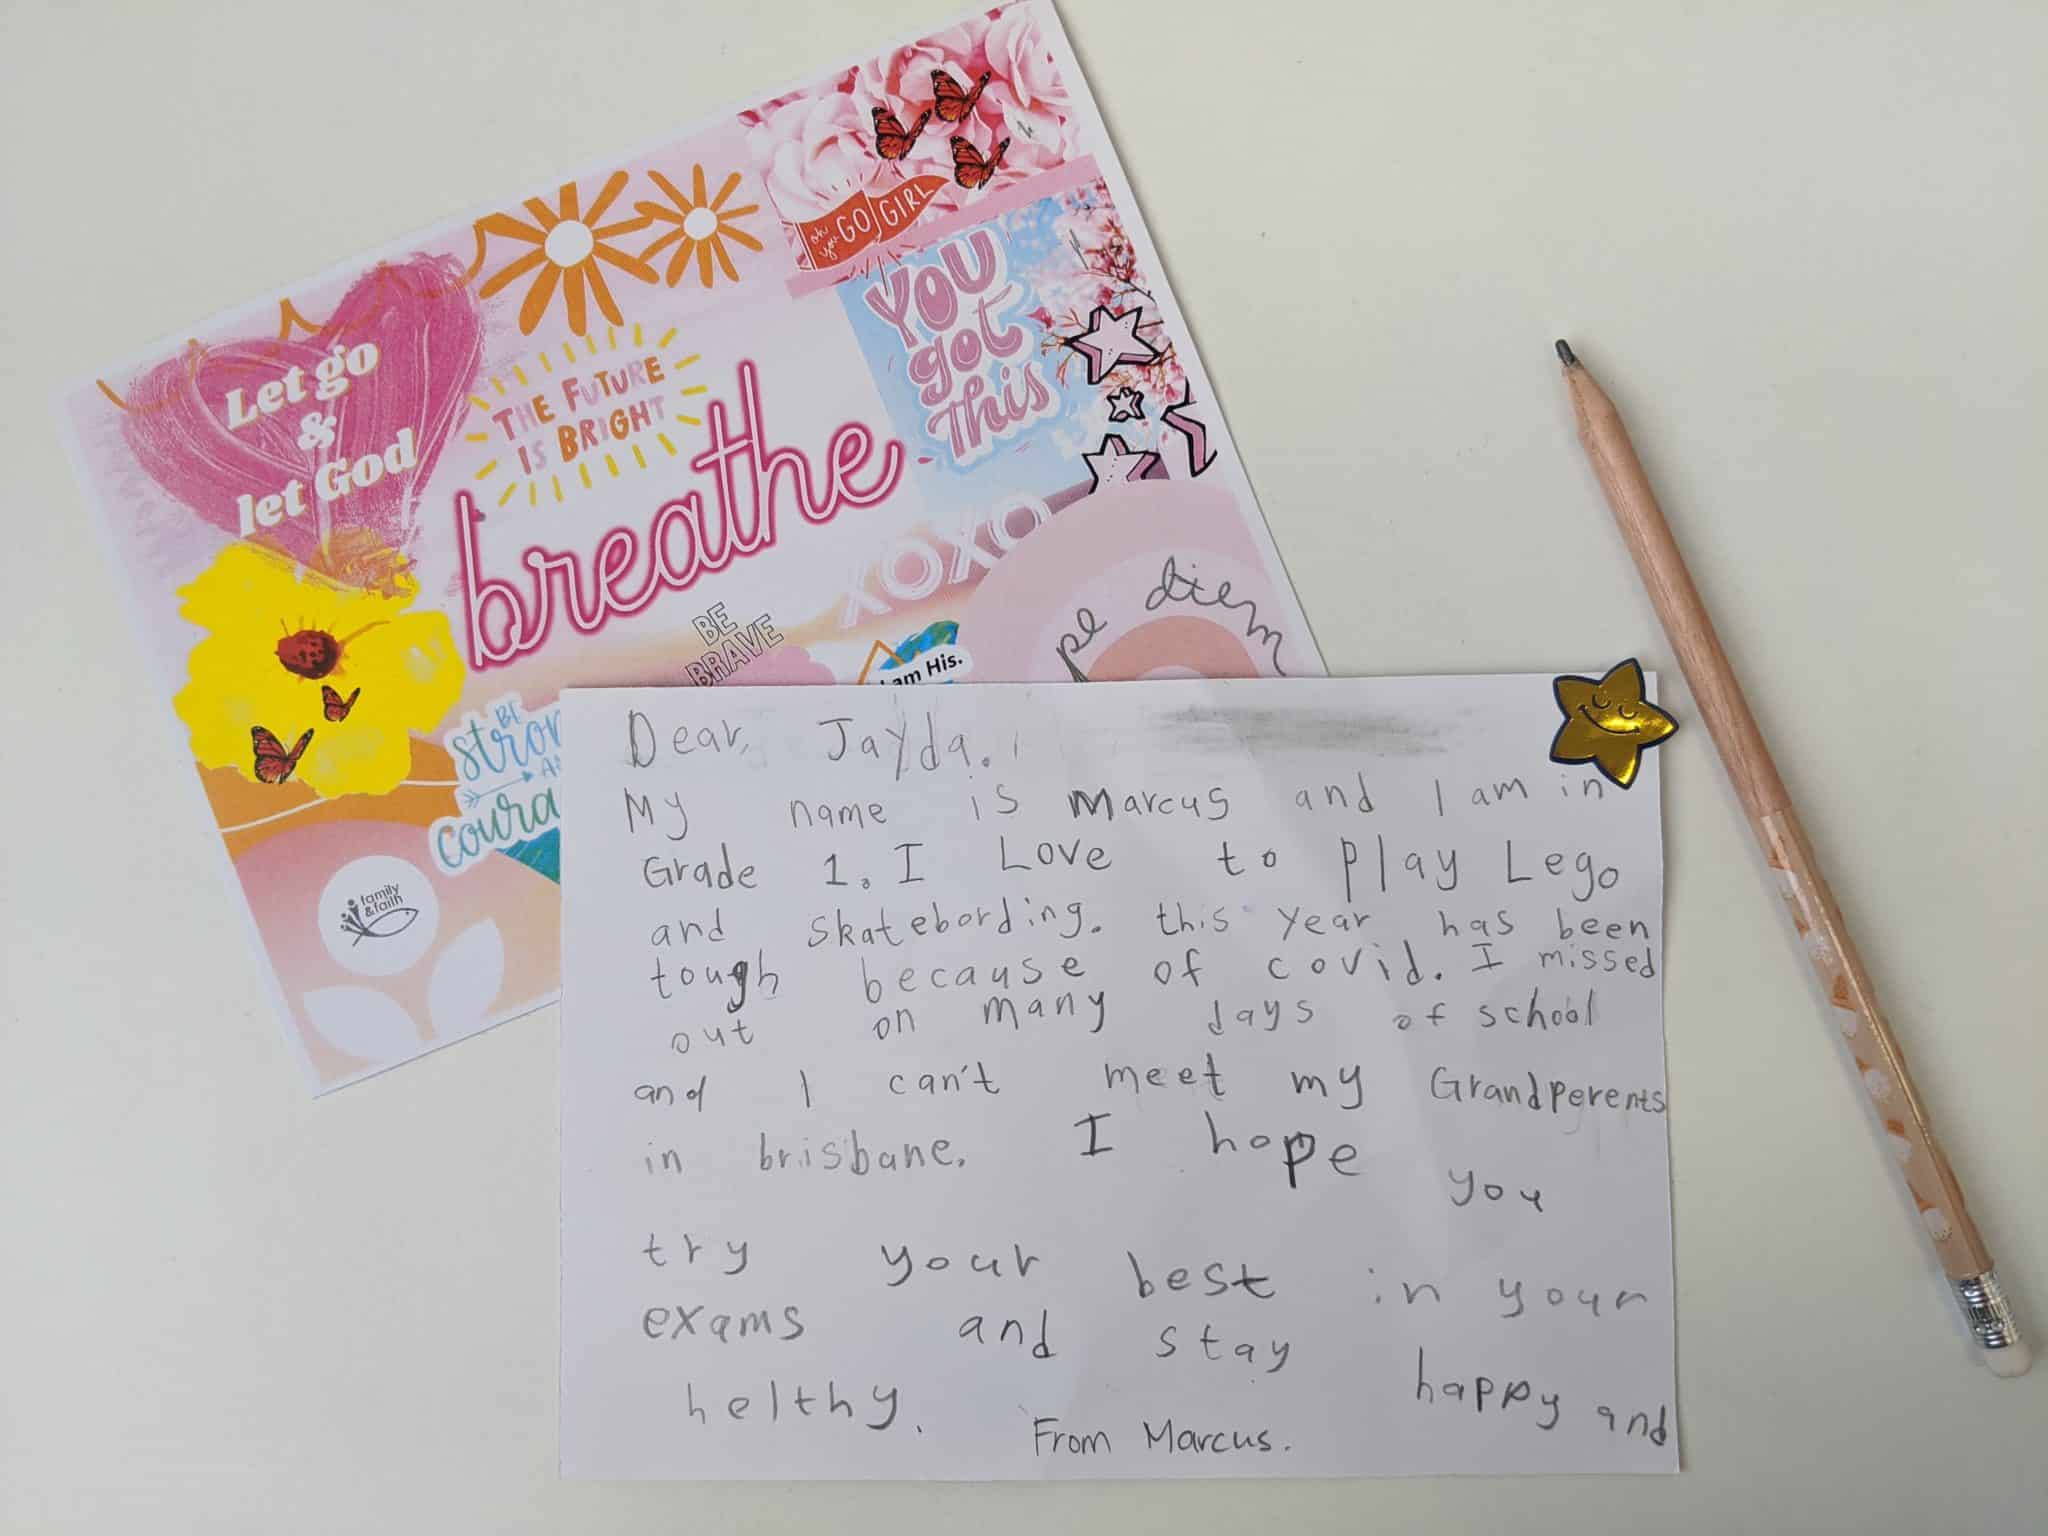 oh you GO GIRL
YOU
got
This
Let go
&
let God
THE FUTURE
IS BRIGHT
breathe
XOXO
pe diem
BE
BRAVE
I am His.
BE
stron
AN
coura
family
&faith
Dear, Jayda.
My name is Marcus and I am in
Grade 1. I Love to play Lego
and skatebording. this year has been
tough because of covid. I missed
out on many days of school
and I can't meet my Grandperents
in brisbane. I hope you
try your best in your
exams and stay happy and
helthy.
From Marcus.